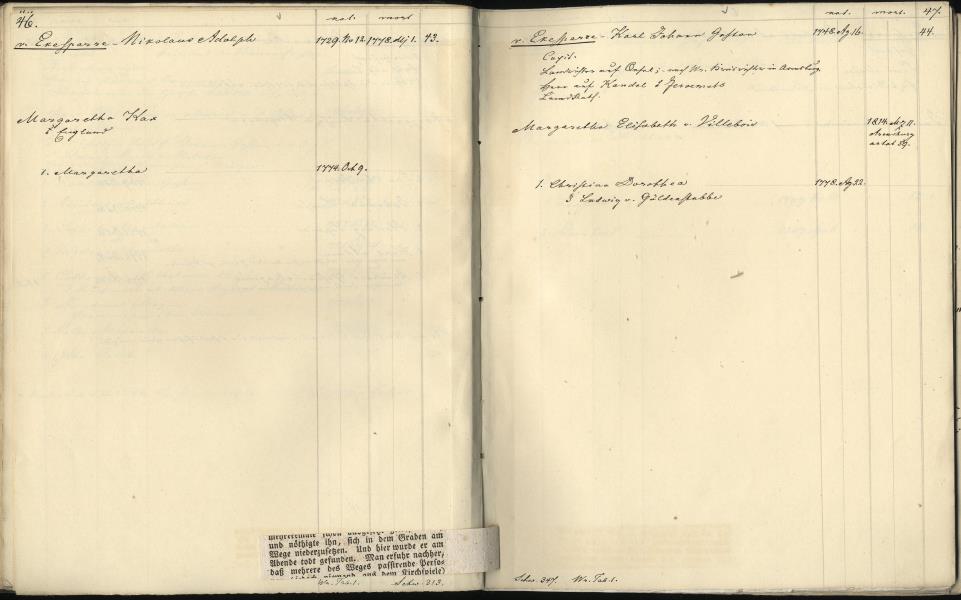 46.
nat. mort.
v. Ekesparre - Nikolaus Adolph 1729. No 12. 1778. Mj 1. 43.
Margaretha Kax
England
1. Margaretha 1774. Oct 9.
und nöthigte ihn, sich in dem Graben am
Wege niederzusetzen. Und hier wurde er am
Abende todt gefunden. Man erfuhr nachher,
daß mehrere des Weges passirende Perso-
Wr. Tab. 1. Schw. 313.
nat. mort. 47.
v. Ekesparre - Karl Johann Gustav 1748. Ag 16. 44.
Capit.
Landrichter auf Oesel; - nach Wr. Kreisrichter in Arensburg.
Herr auf Kandel & Jeromets
Landrath.
Margaretha Elisabeth v. Villebois 1814. Mz 11.
Arensburg
aetat 59.
1. Christina Dorothea 1778. Ag 22.
Ludwig v. Güldenstubbe
Schw. 347. Wr. Tab. 1.